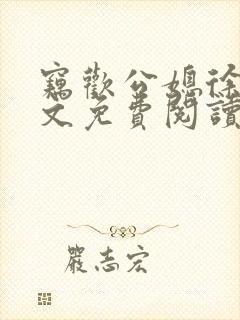 竊歡公媳徐
文免費閱讀
嚴志宏